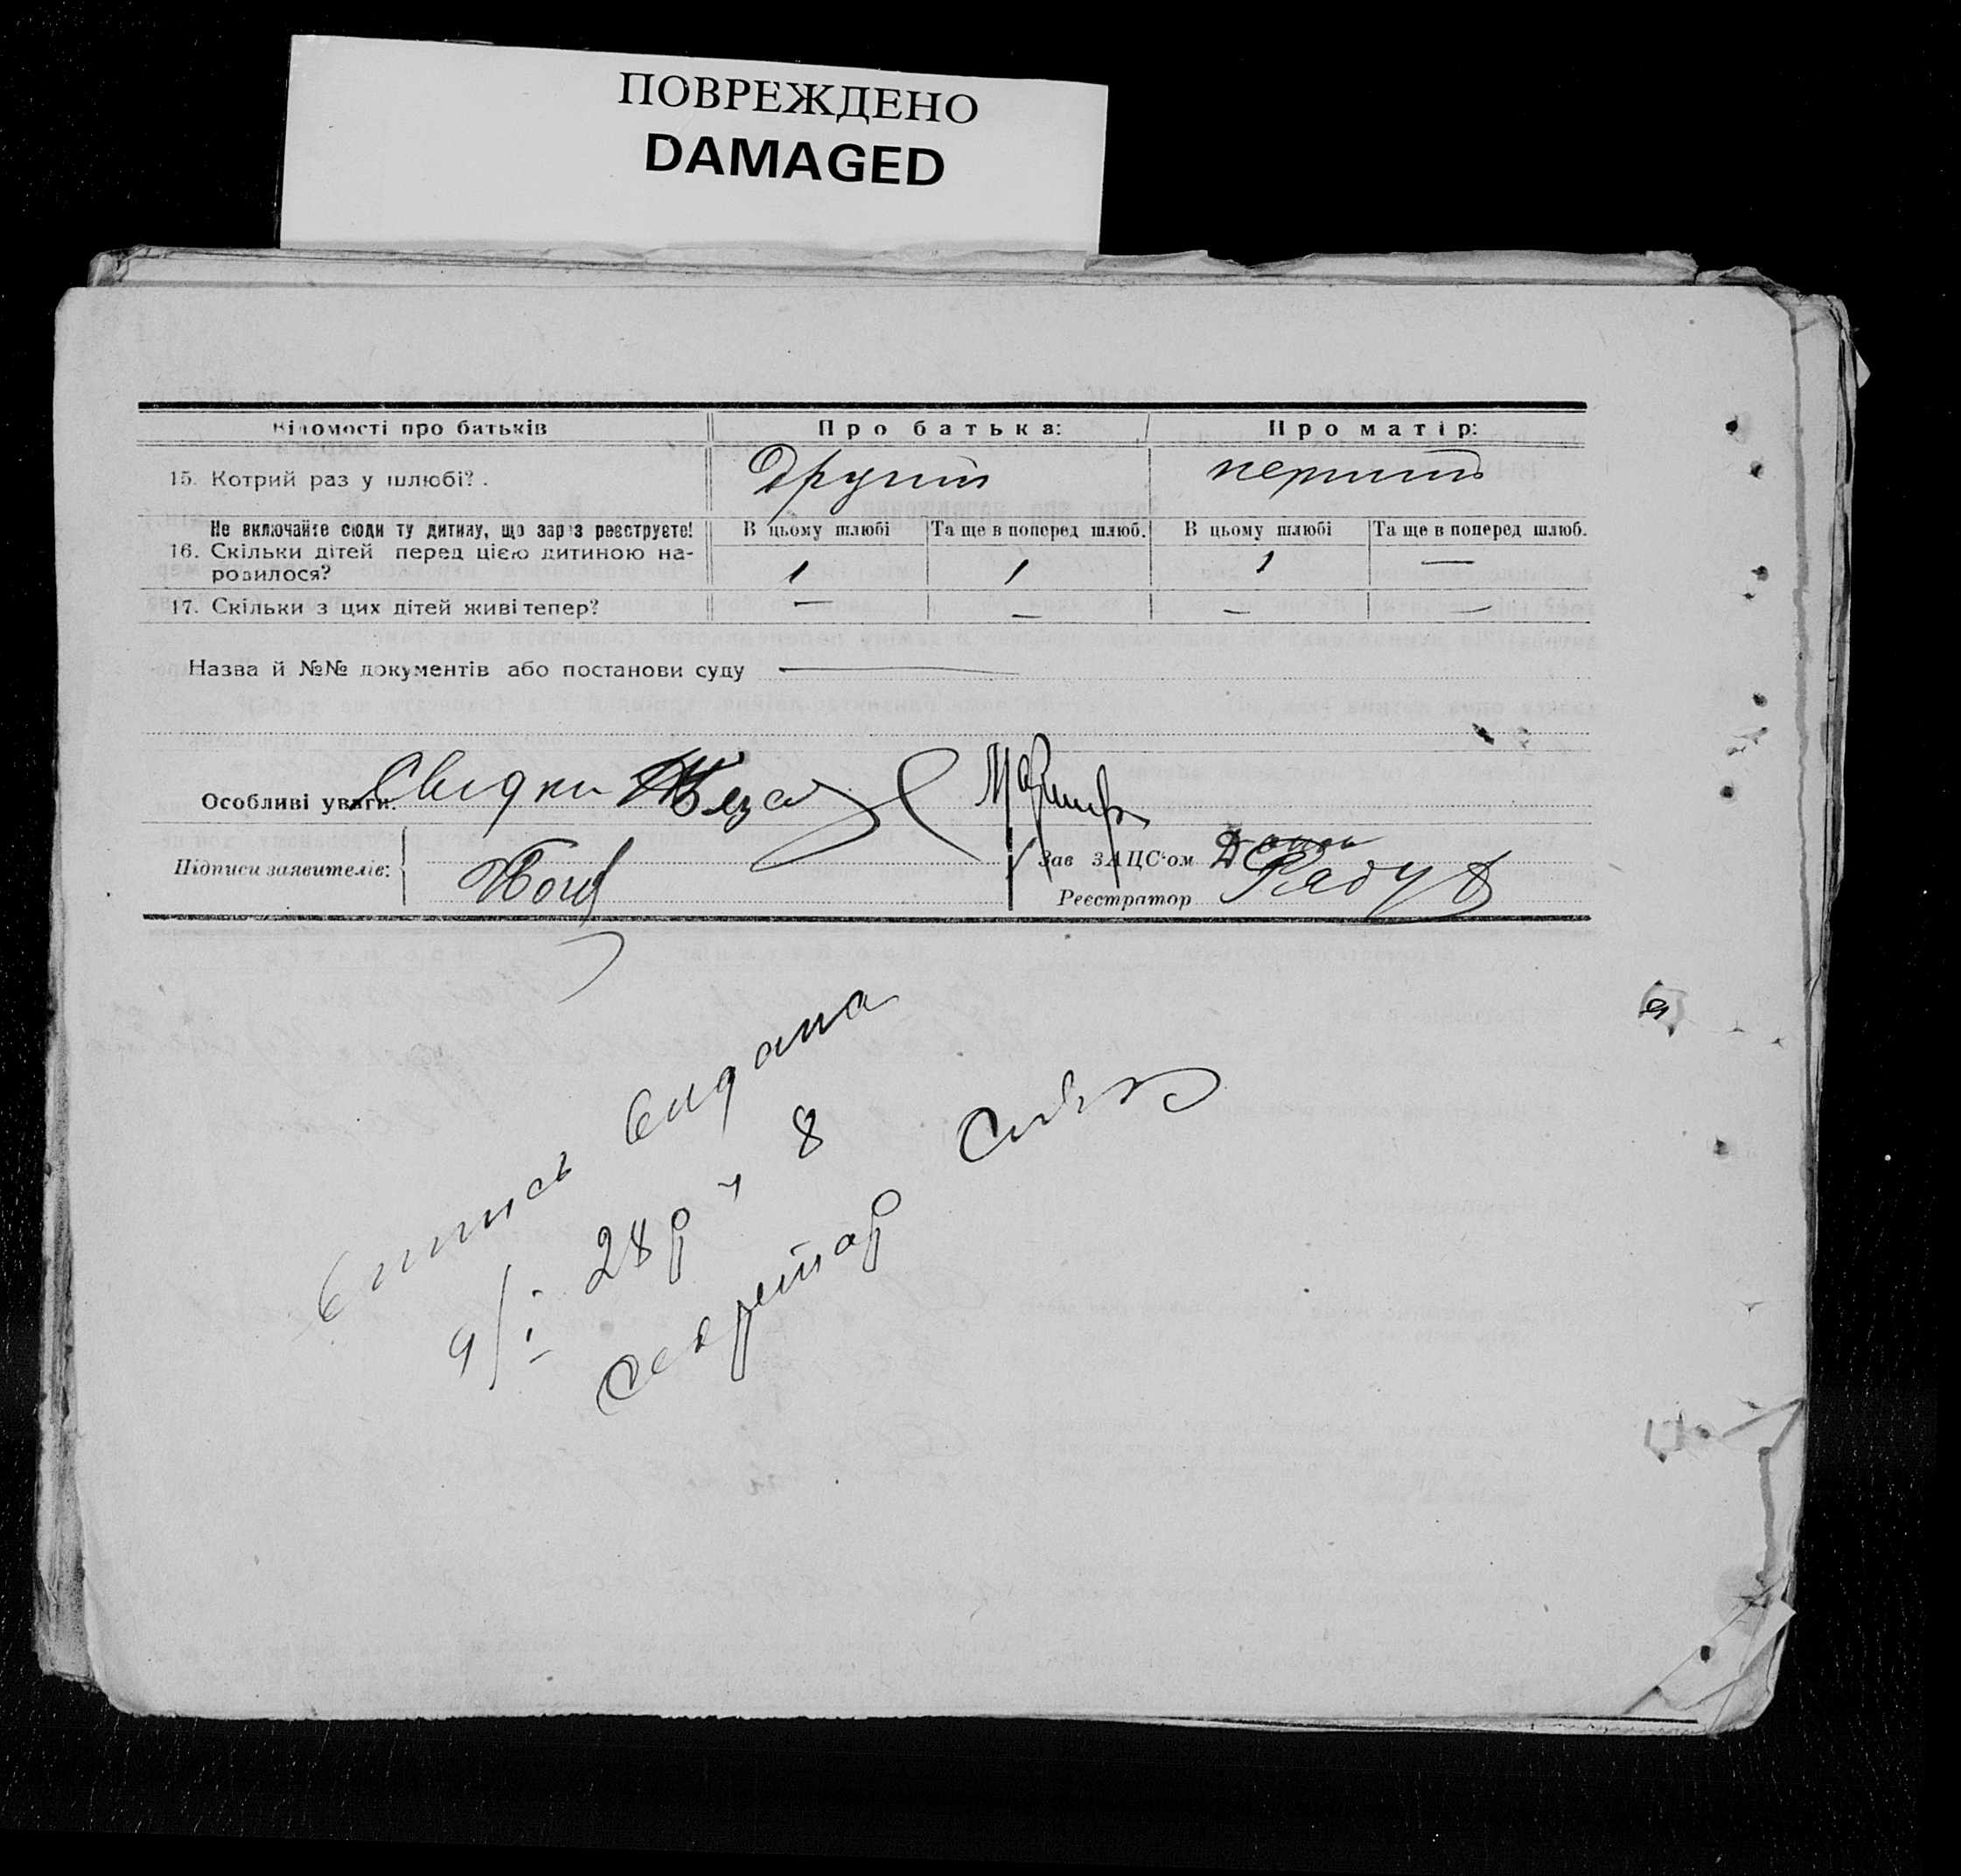 ПОВРЕЖДЕНО
DAMAGED
Відомості про батьків Про батька: Про матір:
15. Котрий раз у шлюбі? . Другий перший
Не включайте сюди ту дитину, що зараз реєструєте! В цьому шлюбі Та ще в поперед шлюб. В цьому шлюбі Та ще в поперед шлюб.
16. Скільки дітей перед цією дитиною на-
родилося? 1 1 1 —
17. Скільки з цих дітей живі тепер? — — — —
Назва й №№ документів або постанови суду —
Особливі уваги: Свидки
Підписи заявителів:
Зав ЗАЦС'ом
Реєстратор
випись видана
9/I 28р ч 8
секретар